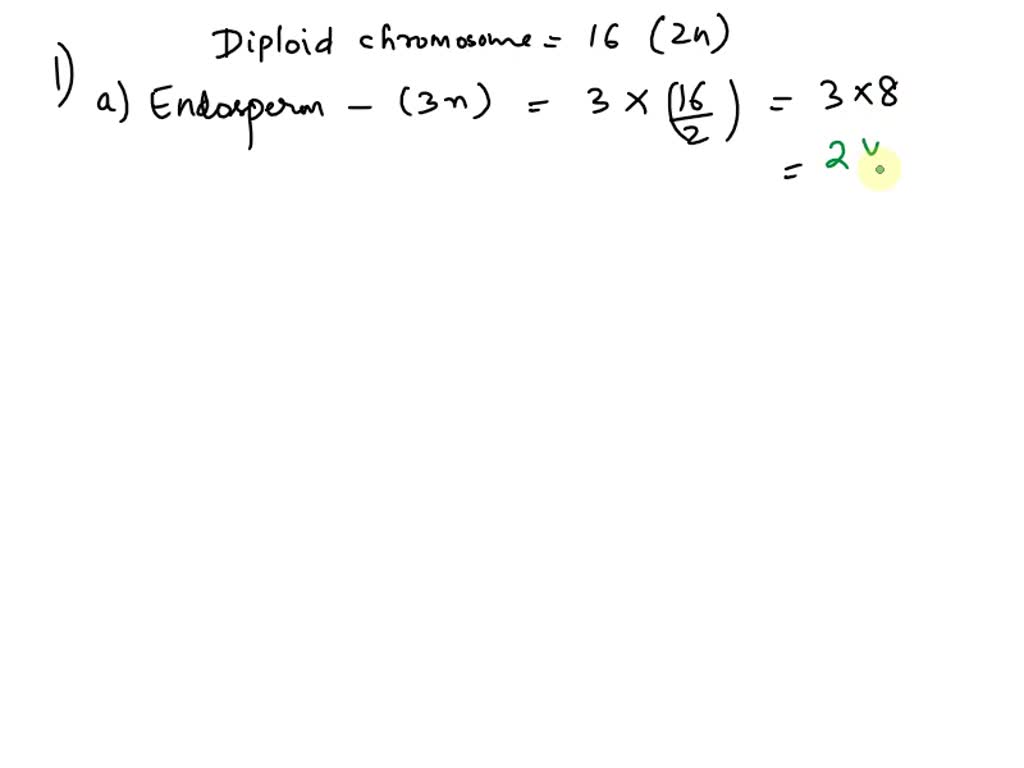 Diploid chromosome = 16 (2n)
1)
a) Endosperm - (3n) = 3 × (16/2) = 3 × 8
= 2